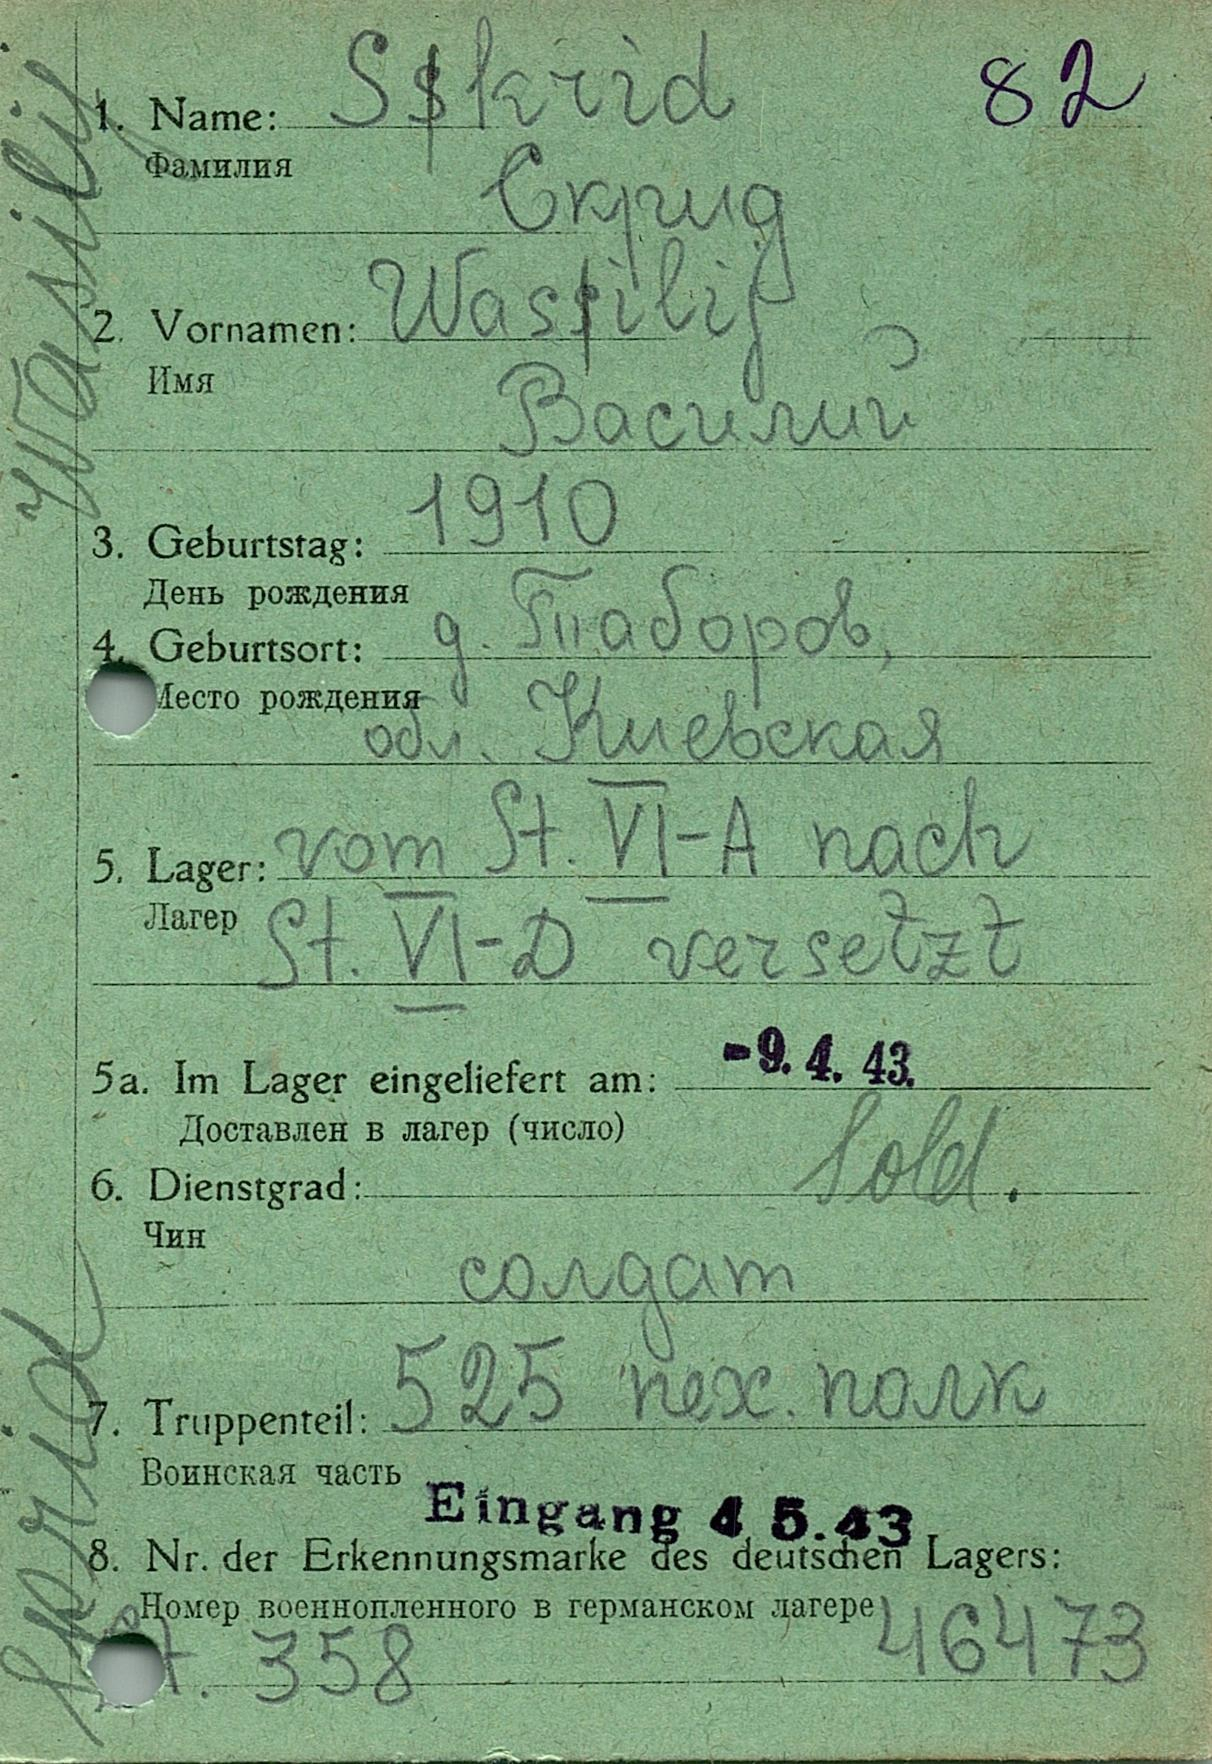 82
1. Name: Sskrid
Фамилия
Скрид
2. Vornamen: Wassilij
Имя
Василий
3. Geburtstag: 1910
День рождения
4. Geburtsort: д. Таборов,
Место рождения
обл. Киевская
5. Lager: vom St. VI-A nach
Лагер
St. VI-D versetzt
5a. Im Lager eingeliefert am: -9. 4. 43.
Доставлен в лагер (число)
6. Dienstgrad: Sold.
Чин
солдат
7. Truppenteil: 525 пех. полк
Воинская часть
Eingang 4 5.43
8. Nr. der Erkennungsmarke des deutschen Lagers:
Номер военнопленного в германском лагере
St. 358 46473
Skrid Wasilij